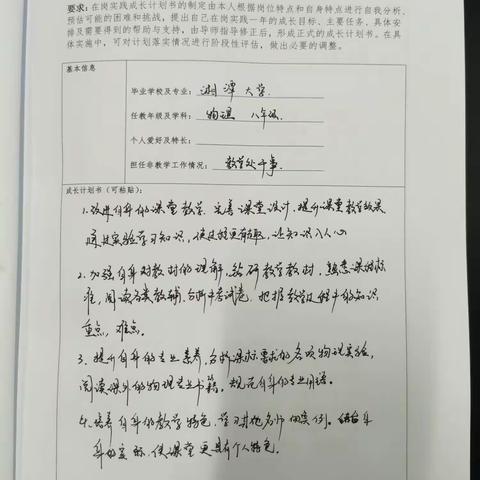 要求：在岗实践成长计划书的制定由本人根据岗位特点和自身特点进行自我分析、
预估可能的困难和挑战，提出自己在岗实践一年的成长目标、主要任务、具体安
排及需要得到的帮助与支持，由导师指导修正后，形成正式的成长计划书。在具
体实施中，可对计划落实情况进行阶段性评估，做出必要的调整。
基本信息
毕业学校及专业：湘潭大学
任教年级及学科：物理 八年级
个人爱好及特长：
担任非教学工作情况：教学处干事
成长计划书（可粘贴）：
1.改进自身的课堂教学，完善课堂设计，提升课堂教学效果
通过实验学习知识，使课堂更有趣，让知识入人心
2.加强自身对教材的理解，钻研教学教材，熟悉课程标
准，阅读各类教辅，分析中考试卷，把握教学过程中的知识
重点，难点。
3.提升自身的专业素养，分析课标要求的各项物理实验，
阅读课外的物理专业书籍，规范自身的专业用语。
4.培养自身的教学特色，学习其他名师的案例。结合自
身的实际，使课堂更具有个人特色。